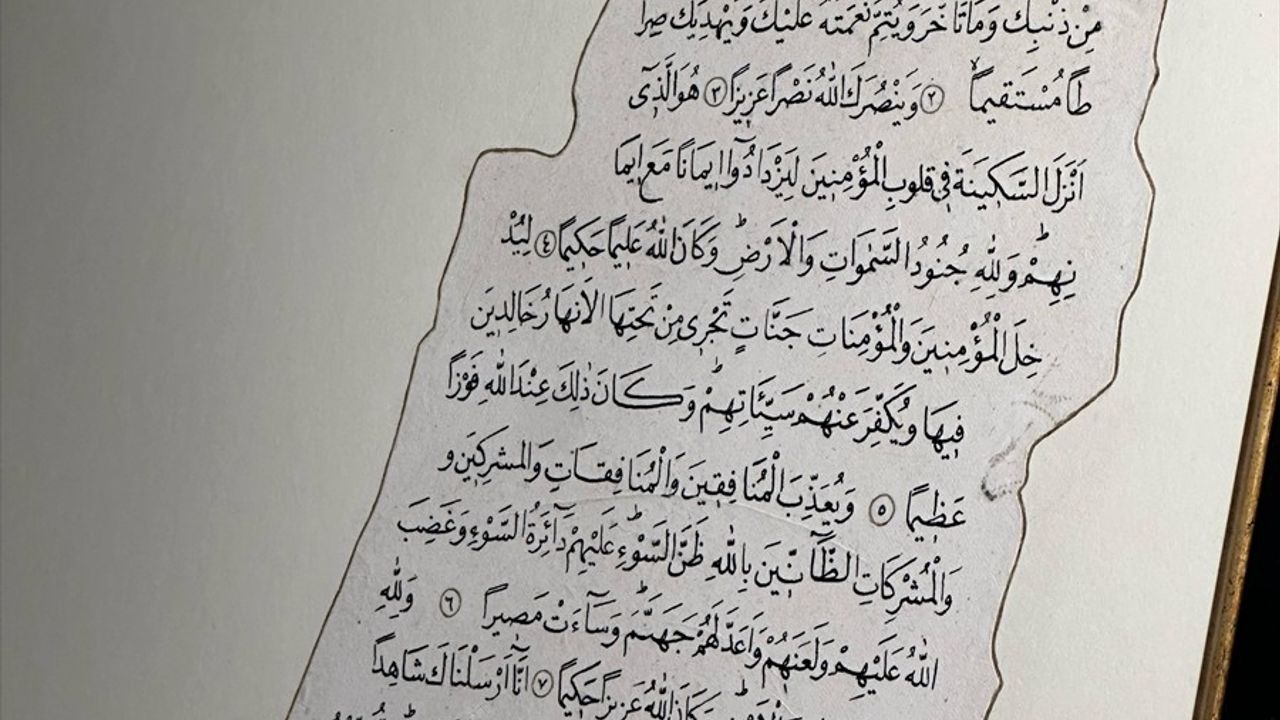 مِنْ ذَنْبِكَ وَمَا تَأَخَّرَ وَيُتِمَّ نِعْمَتَهُ عَلَيْكَ وَيَهْدِيَكَ صِرَا
طًا مُسْتَقِيمًا ٢ وَيَنْصُرَكَ اللّٰهُ نَصْرًا عَزِيزًا ٣ هُوَ الَّذِٓى
اَنْزَلَ السَّكِينَةَ فِى قُلُوبِ الْمُؤْمِنِينَ لِيَزْدَادُٓوا اِيمَانًا مَعَ اِيمَا
نِهِمْ ۜ وَلِلّٰهِ جُنُودُ السَّمٰوَاتِ وَالْاَرْضِ ۜ وَكَانَ اللّٰهُ عَلِيمًا حَكِيمًا ٤ لِيُدْ
خِلَ الْمُؤْمِنِينَ وَالْمُؤْمِنَاتِ جَنَّاتٍ تَجْرِى مِنْ تَحْتِهَا الْاَنْهَارُ خَالِدِينَ
فِيهَا وَيُكَفِّرَ عَنْهُمْ سَيِّئَاتِهِمْ ۜ وَكَانَ ذٰلِكَ عِنْدَ اللّٰهِ فَوْزًا
عَظِيمًا ٥ وَيُعَذِّبَ الْمُنَافِقِينَ وَالْمُنَافِقَاتِ وَالْمُشْرِكِينَ و
وَالْمُشْرِكَاتِ الظَّٓانِّينَ بِاللّٰهِ ظَنَّ السَّوْءِ ۜ عَلَيْهِمْ دَٓائِرَةُ السَّوْءِ وَغَضِبَ
اللّٰهُ عَلَيْهِمْ وَلَعَنَهُمْ وَاَعَدَّ لَهُمْ جَهَنَّمَ ۜ وَسَٓاءَتْ مَصِيرًا ٦ وَلِلّٰهِ
وَكَانَ اللّٰهُ عَزِيزًا حَكِيمًا ٧ اِنَّٓا اَرْسَلْنَاكَ شَاهِدًا